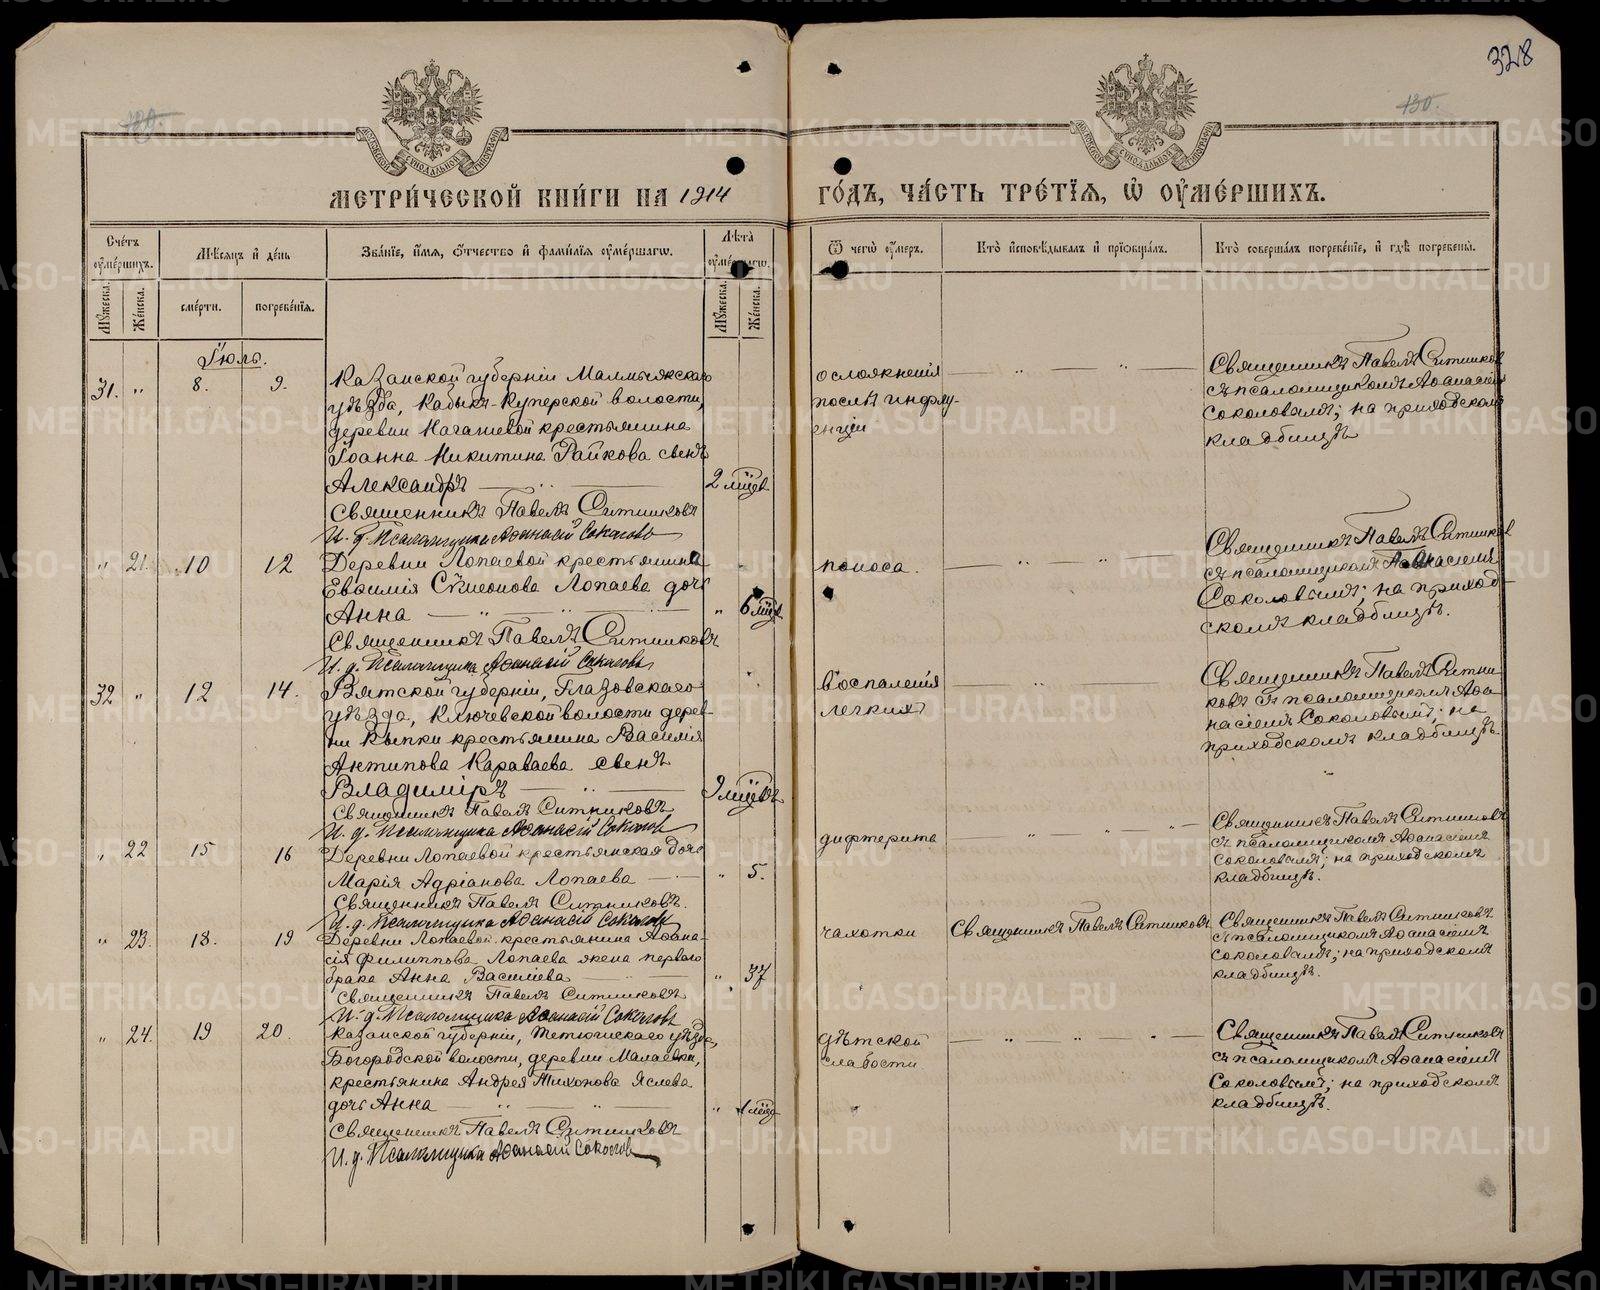 328
130.
МЕТРИ́ЧЕСКОЙ КНИ́ГИ НА 1914
ГО́ДЪ, ЧА́СТЬ ТРЕ́ТЇѦ, Ѡ҆ ОУ҆МЕ́РШИХЪ.
Сче́тъ оу҆ме́ршихъ.
Мѣ́сѧцъ и҆ де́нь
Зва́нїе, и҆́мѧ, ѻ҆́тчество и҆ фами́лїѧ оу҆ме́ршагѡ.
Лѣ́та оу҆ме́ршагѡ.
Ѿ чегѡ̀ оу҆́меръ.
Кто̀ и҆сповѣ́дывалъ и҆ прїѡбща́лъ.
Кто̀ соверша́лъ погребе́нїе, и҆ гдѣ̀ погребены̀.
Мꙋ́жеска.
Же́нска.
сме́рти.
погребе́нїѧ.
Мꙋ́жеска.
Же́нска.
Іюль.
31. " 8. 9.
Казанской губерніи Малмыжскаго
уѣзда, Кабыкъ-Куперской волости,
деревни Нагашевой крестьянина
Іоанна Никитина Райкова сынъ
Александръ — " — 2 мѣсе
Священникъ Павелъ Ситниковъ
И. д. Псаломщика Аѳанасій Соколовъ
осложненія
послѣ инфлу-
енціи
— " — " —
Священникъ Павелъ Ситников
съ псаломщикомъ Аѳанасіемъ
Соколовымъ; на приходскомъ
кладбищѣ
" 21. 10 12
Деревни Лопаевой крестьянина
Евѳимія Сѵмеонова Лопаева дочь
Анна — " — " 6 мѣс
Священникъ Павелъ Ситниковъ
И. д. Псаломщика Аѳанасій Соколовъ
поноса.
— " — " —
Священникъ Павелъ Ситников
съ псаломщикомъ Аѳанасіемъ
Соколовымъ; на приход-
скомъ кладбищѣ.
32 " 12 14.
Вятской губерніи, Глазовскаго
уѣзда, Ключевской волости дерев-
ни Кыпки крестьянина Василія
Антипова Караваева сынъ
Владиміръ — " — 9 мѣсцъ
Священникъ Павелъ Ситниковъ
И. д. Псаломщика Аѳанасій Соколов
воспаленія
легкихъ
— " —
Священникъ Павелъ Ситни-
ковъ съ псаломщикомъ Аѳа-
насіемъ Соколовымъ; на
приходскомъ кладбищѣ.
" 22 15 16
Деревни Лопаевой крестьянская дочь
Марія Адріанова Лопаева — " 5.
Священникъ Павелъ Ситниковъ.
И. д. Псаломщика Аѳанасій Соколовъ
дифтерита
" " — " —
Священникъ Павелъ Ситниковъ
съ псаломщикомъ Аѳанасіемъ
Соколовымъ; на приходскомъ
кладбищѣ.
" 23. 18. 19
Деревни Лопаевой крестьянина Аѳана-
сія Филиппова Лопаева жена перваго
брака Анна Василіева — " 37
Священникъ Павелъ Ситниковъ
И. д. Псаломщика Аѳанасій Соколовъ
чахотки
Священникъ Павелъ Ситниковъ
Священникъ Павелъ Ситниковъ
съ псаломщикомъ Аѳанасіемъ
Соколовымъ; на приходскомъ
кладбищѣ.
" 24. 19 20.
Казанской губерніи, Тетюшскаго уѣзда,
Богородской волости, деревни Малаевки,
крестьянина Андрея Тихонова Яслева
дочь Анна — " — " — " 1 мѣсц
Священникъ Павелъ Ситниковъ
И. д. Псаломщика Аѳанасій Соколов
дѣтской
слабости
— " — " — " —
Священникъ Павелъ Ситниковъ
съ псаломщикомъ Аѳанасіемъ
Соколовымъ; на приходскомъ
кладбищѣ.
METRIKI.GASO-URAL.RU